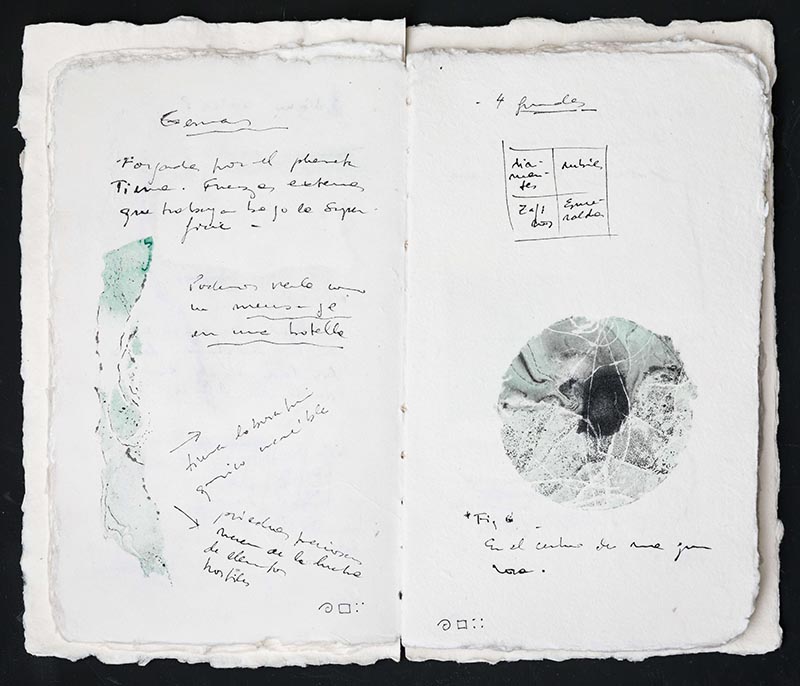 Gemas
Forjadas por el planeta
Tierra. Fuerzas externas
que trabajan bajo la super-
ficie -
Podemos verlo como
un mensaje
en una botella
→ tierra laboratorio
químico increíble
→ piedras preciosas
nacen de la lucha
de elementos
hostiles
- 4 grandes
dia-
man-
tes
rubíes
Zafi
ros
Esme-
raldas
*Fig 6
En el centro de una gran
roca.